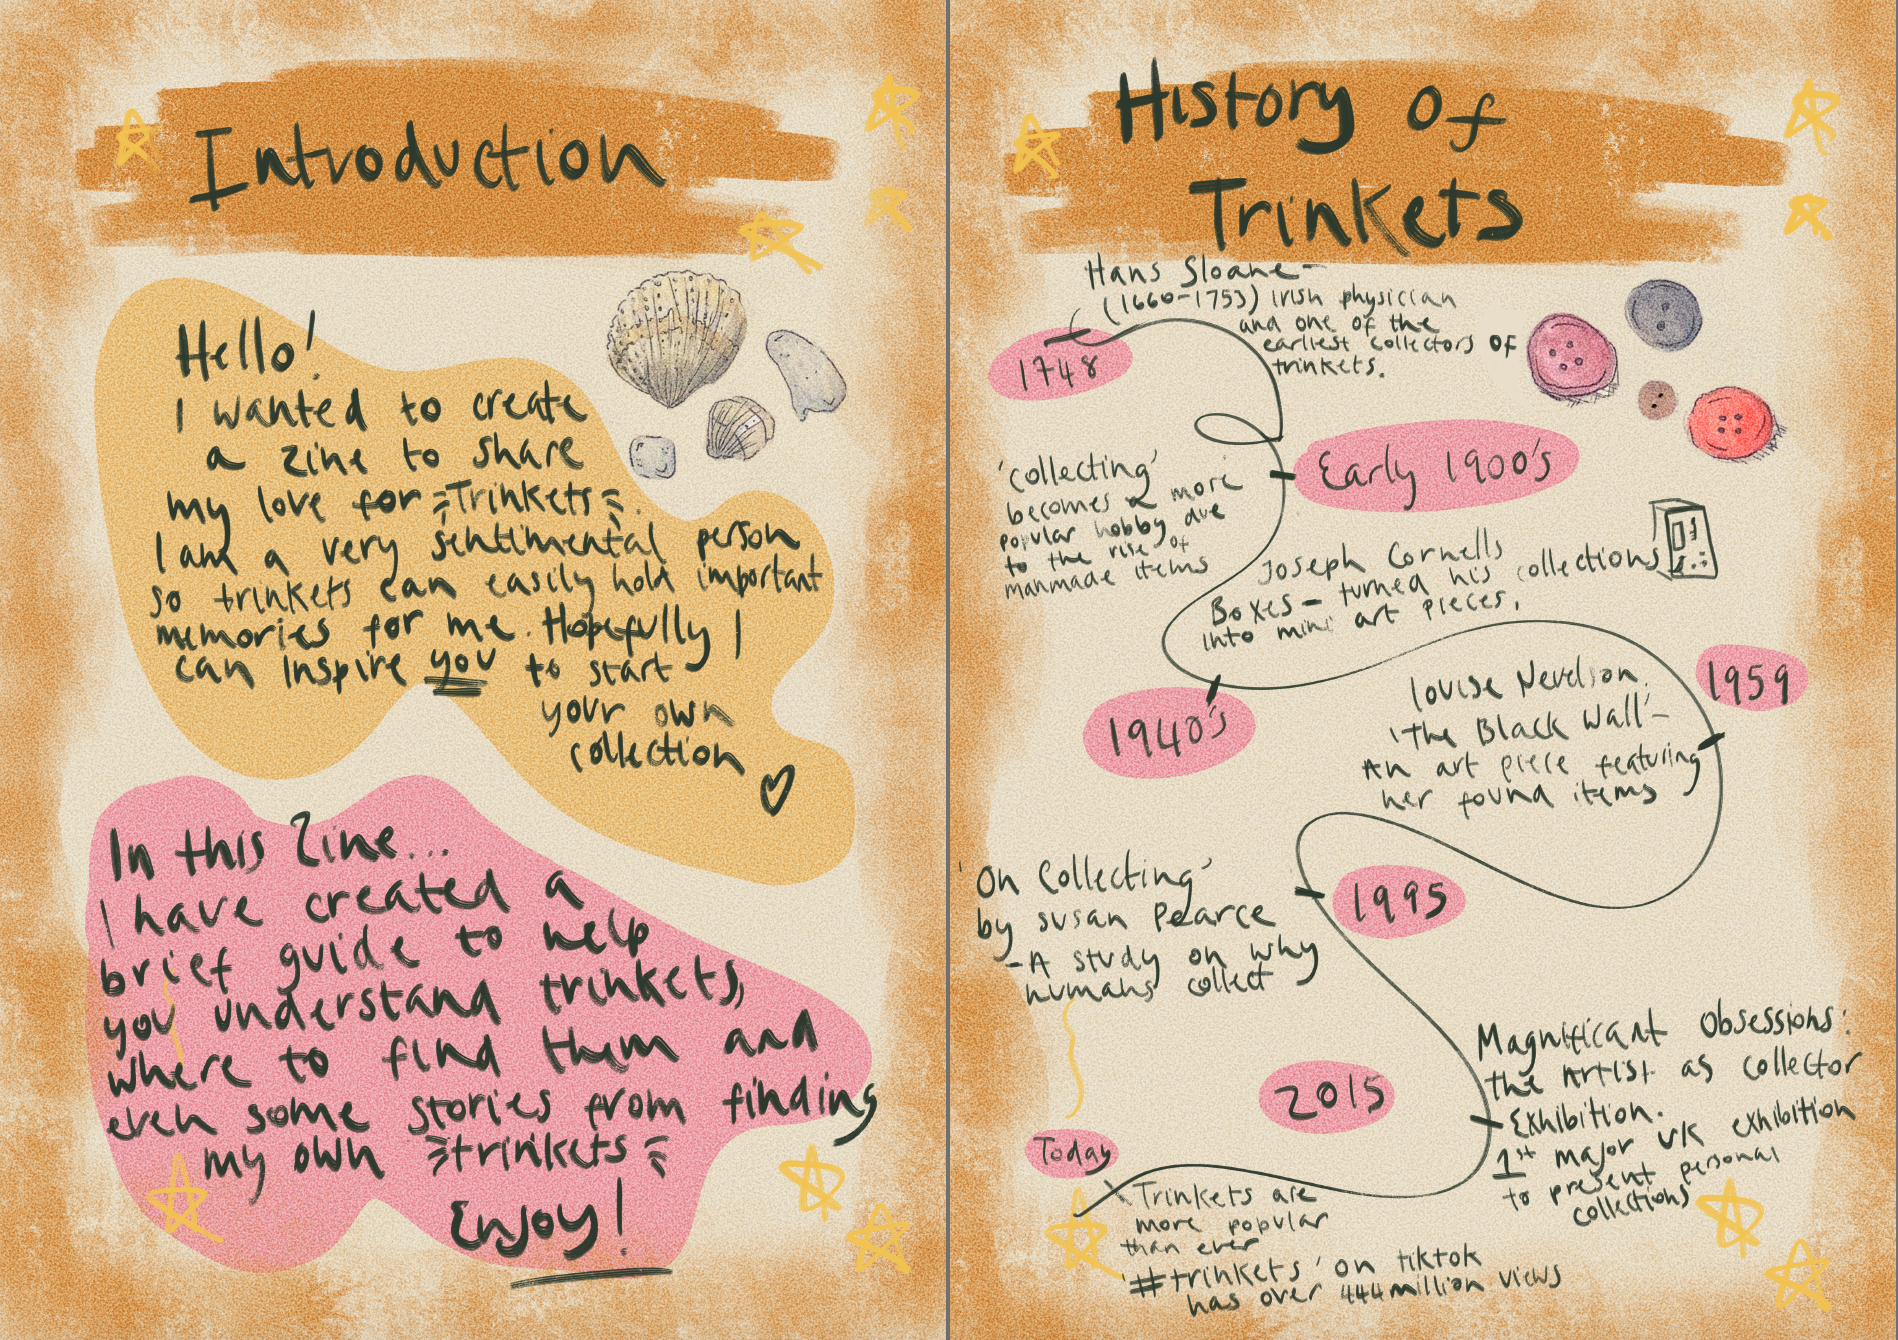 Introduction
Hello!
I wanted to create
a zine to share
my love for Trinkets.
I am a very sentimental person
so trinkets can easily hold important
memories for me. Hopefully I
can inspire you to start
your own
collection
In this Zine...
I have created a
brief guide to help
you understand trinkets,
where to find them and
even some stories from finding
my own trinkets
Enjoy!
History Of
Trinkets
Hans Sloane-
(1660-1753) Irish physician
and one of the
earliest collectors OF
trinkets.
1748
Early 1900's
'collecting'
becomes a more
popular hobby due
to the rise of
manmade items
Joseph Cornells
Boxes - turned his collections
into mini art pieces.
1940's
1959
Louise Nevelson.
'The Black Wall' -
An art piece featuring
her found items
'On Collecting'
by Susan Pearce
- A study on why
humans collect
1995
2015
Magnificant Obsessions:
the Artist as collector
Exhibition.
1st major UK exhibition
to present personal
collections
Today
Trinkets are
more popular
than ever
'#trinkets' on tiktok
has over 444million views